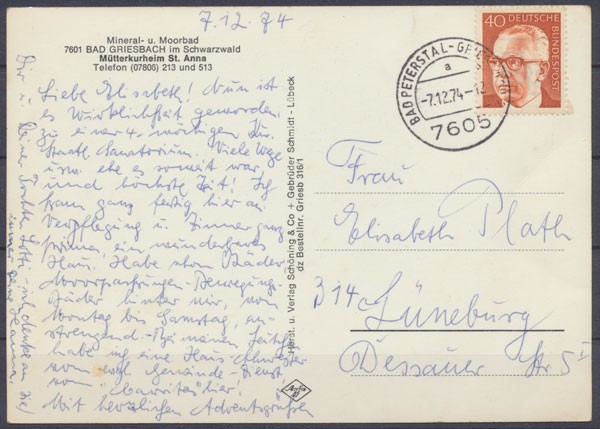 7.12.74
Mineral- u. Moorbad
7601 BAD GRIESBACH im Schwarzwald
Mütterkurheim St. Anna
Telefon (07806) 213 und 513
Liebe Elisabeth! Nun ist
es Wirklichkeit geworden,
zu einer 4. wöchigen Kur.
Staatl. Sanatorium. Viele Wege
usw. ehe es soweit war,
und höchste Zeit! Ich
kam ganz fertig hier an.
Verpflegung u. Zimmer ganz
prima, ein wunderbares
Haus. Habe schon Bäder
Bewegungs-
Bäder hinter mir, von
Montag bis Samstag, an-
strengend. Bei meinen
habe ich eine Haus
vom evgl. Gemeinde-Dienst
vom "Caaritas" hier.
Mit herzlichen Adventsgrüßen
Dir u. Deiner Tochter ich denke an Sie/
immer Deine Hanna.
Herst. u. Verlag Schöning & Co + Gebrüder Schmidt - Lübeck
dz Bestellnr. Griesb 316/1
40 DEUTSCHE
BUNDESPOST
BAD PETERSTAL-GRIESBACH
a
-7.12.74-12
7605
Frau
Elisabeth Plath
314 Lüneburg
Dessauer Str. 5